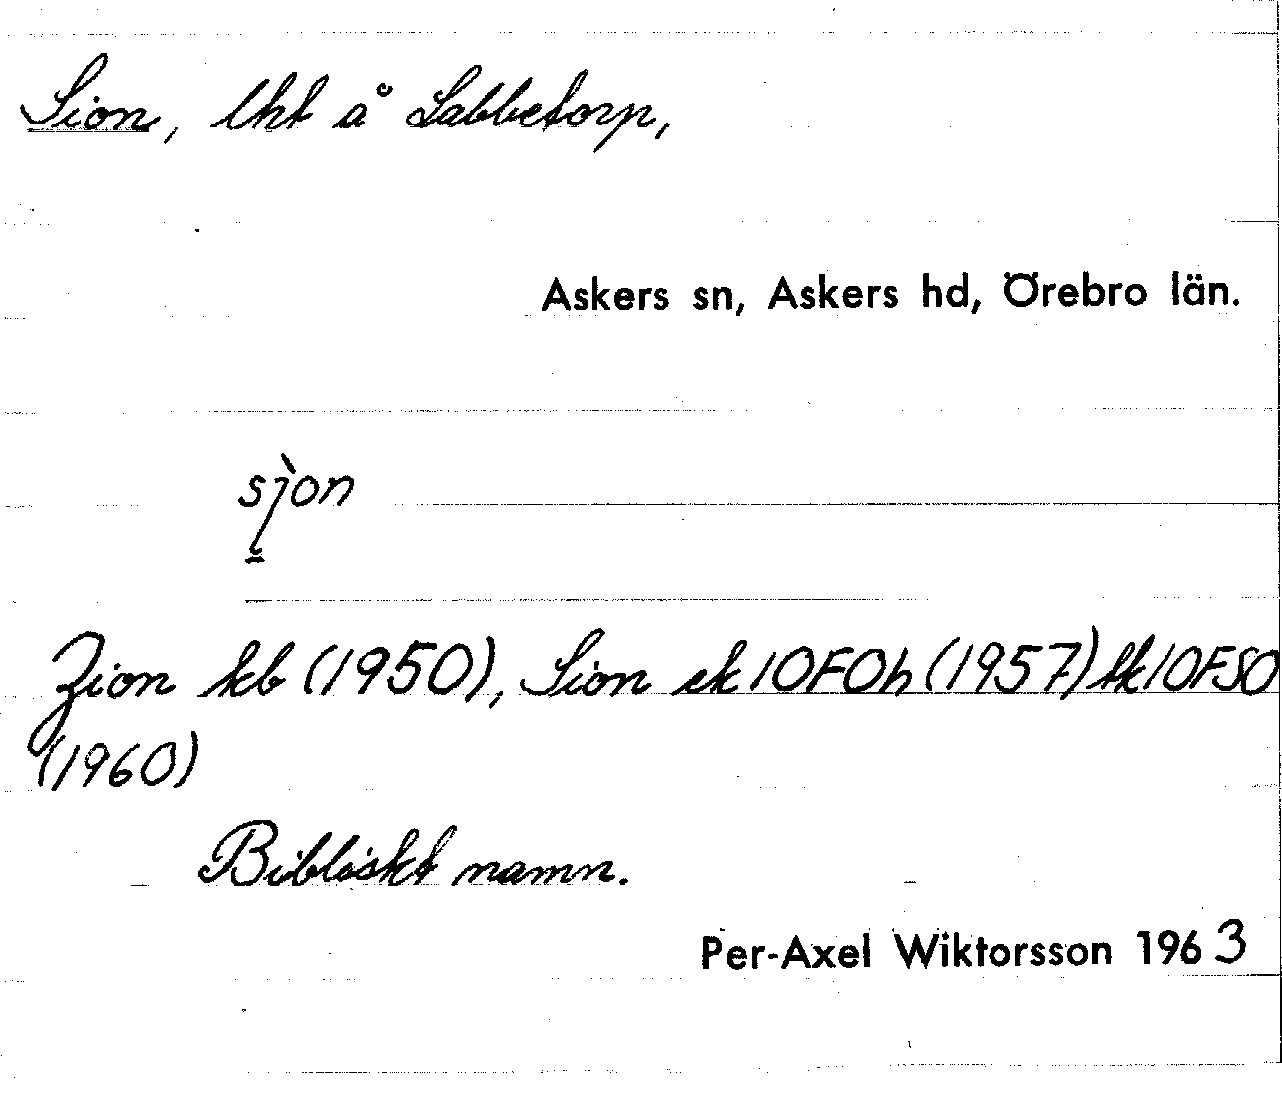 Sion, lht å Labbetorp,
Askers sn, Askers hd, Örebro län.
sjòn
Zion kb (1950), Sion ek 10F0h (1957) tk 10FSO
(1960)
Bibliskt namn.
Per-Axel Wiktorsson 1963